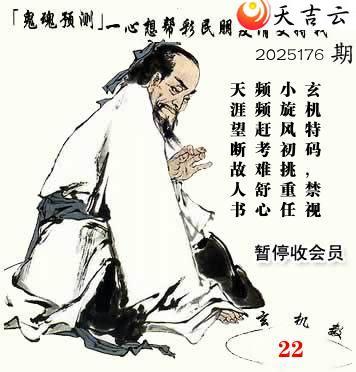 天吉云
「鬼魂预测」一心想帮彩民朋
2025176 期
玄机特码，禁视
小旋风初挑重任
频频赶考难舒心
天涯望断故人书
暂停收会员
玄机数
22